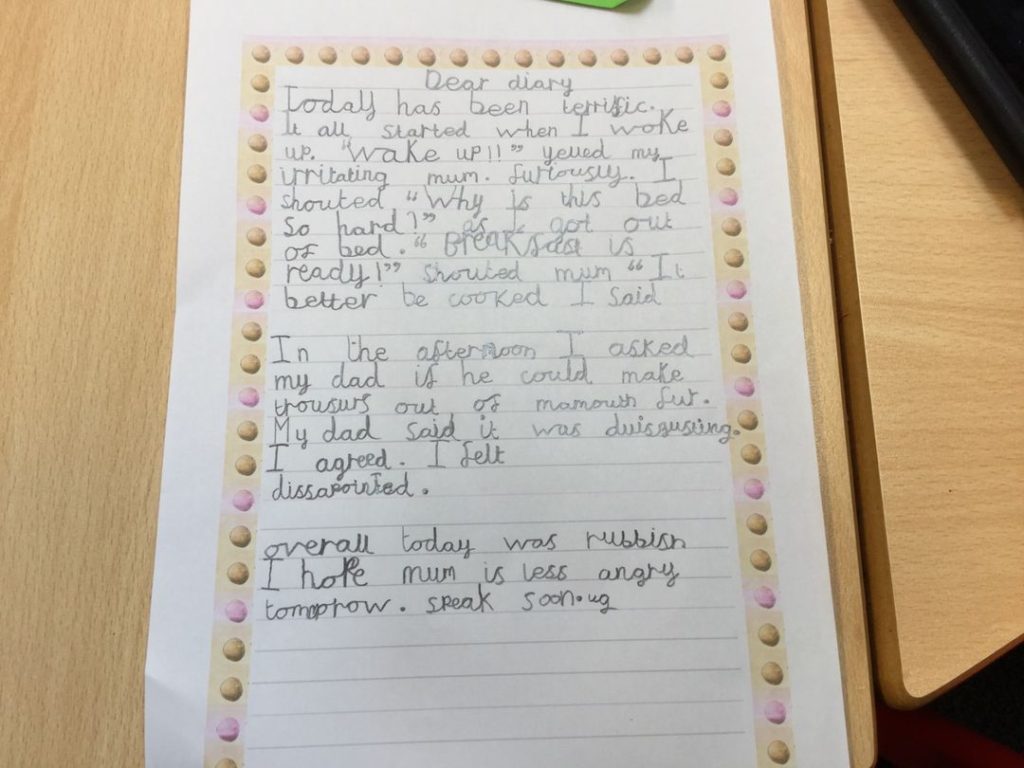 Dear diary
Today has been terrific.
It all started when I woke
up. "Wake up!!" yelled my
irritating mum. furiously. I
shouted "Why is this bed
so hard!" as I got out
of bed. "Breakfast is
ready!" shouted mum "It
better be cooked I said
In the afternoon I asked
my dad if he could make
trousurs out of mamouth fur.
My dad said it was duisgusting.
I agreed. I felt
dissapointed.
overall today was rubbish
I hope mum is less angry
tomorrow. speak soon. ug